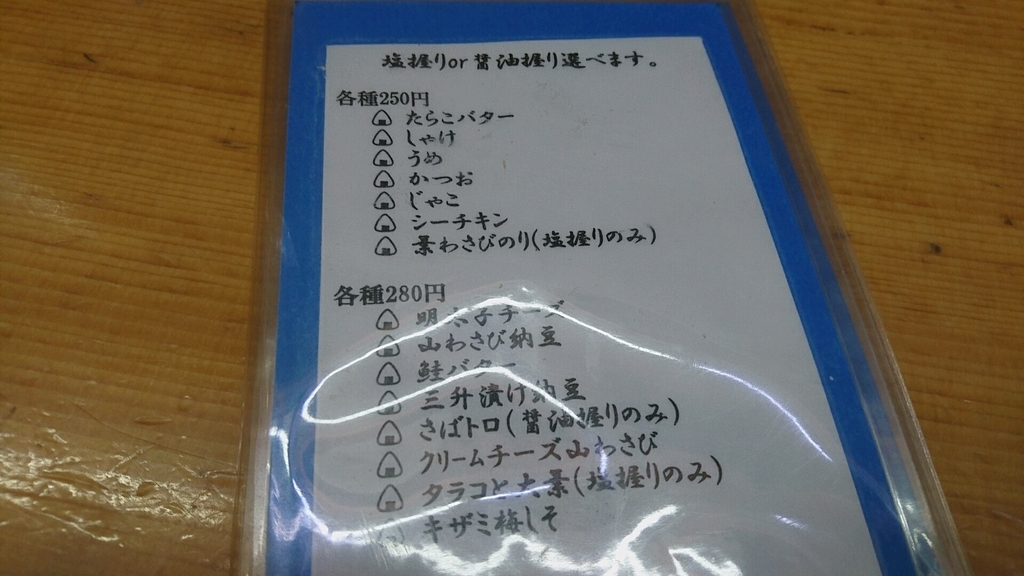 塩握りor醤油握り選べます。
各種250円
たらこバター
しゃけ
うめ
かつお
じゃこ
シーチキン
葉わさびのり(塩握りのみ)
各種280円
明太子チーズ
山わさび納豆
鮭バター
三升漬け納豆
さばトロ(醤油握りのみ)
クリームチーズ山わさび
タラコと大葉(塩握りのみ)
キザミ梅しそ